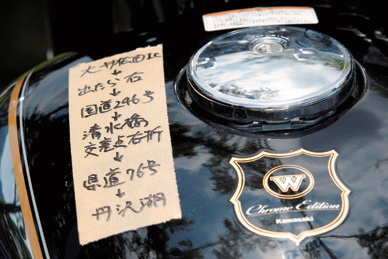 ↓
出たら右
↓
国道246号
↓
清水橋
交差点右折
↓
県道76号
↓
丹沢湖
W
Chrome Edition
Kawasaki